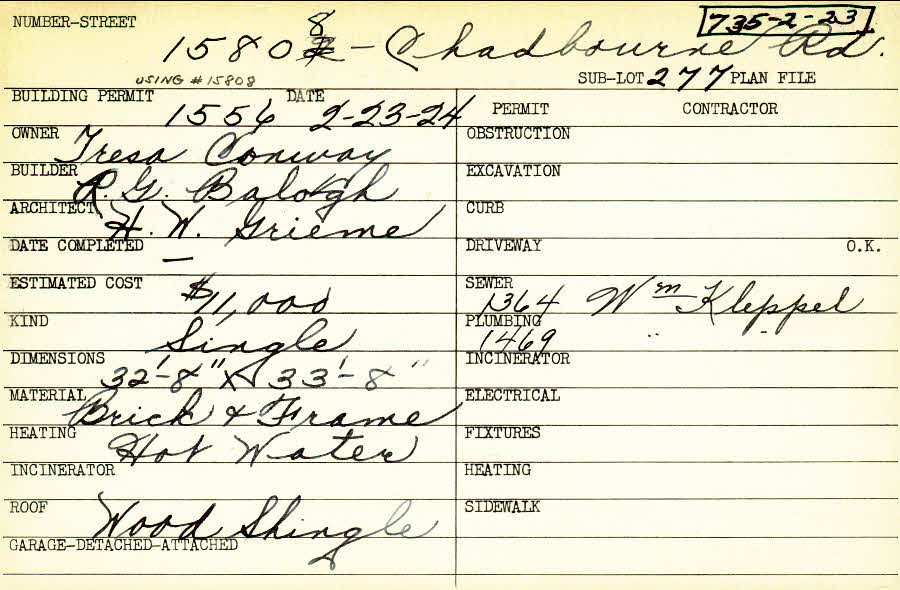 NUMBER-STREET 735-2-23
15808 - Chadbourne Rd.
USING #15808 SUB-LOT 277 PLAN FILE
BUILDING PERMIT 1556 DATE 2-23-24
PERMIT CONTRACTOR
OWNER Tresa Conway
OBSTRUCTION
BUILDER R. G. Balogh
EXCAVATION
ARCHITECT H. W. Grieme
CURB
DATE COMPLETED —
DRIVEWAY O.K.
ESTIMATED COST $11,000
SEWER 1364 Wm Kleppel
KIND Single
PLUMBING 1469 " "
DIMENSIONS 32'-8" X 33'-8"
INCINERATOR
MATERIAL Brick & Frame
ELECTRICAL
HEATING Hot Water
FIXTURES
INCINERATOR
HEATING
ROOF Wood Shingle
SIDEWALK
GARAGE-DETACHED-ATTACHED